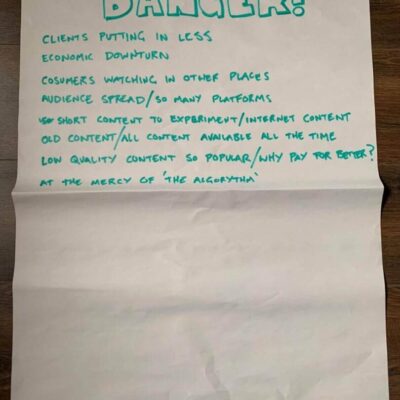 DANGER!
CLIENTS PUTTING IN LESS
ECONOMIC DOWNTURN
COSUMERS WATCHING IN OTHER PLACES
AUDIENCE SPREAD/SO MANY PLATFORMS
SHORT CONTENT TO EXPERIMENT/INTERNET CONTENT
OLD CONTENT/ALL CONTENT AVAILABLE ALL THE TIME
LOW QUALITY CONTENT SO POPULAR/WHY PAY FOR BETTER?
AT THE MERCY OF 'THE ALGORYTHM'